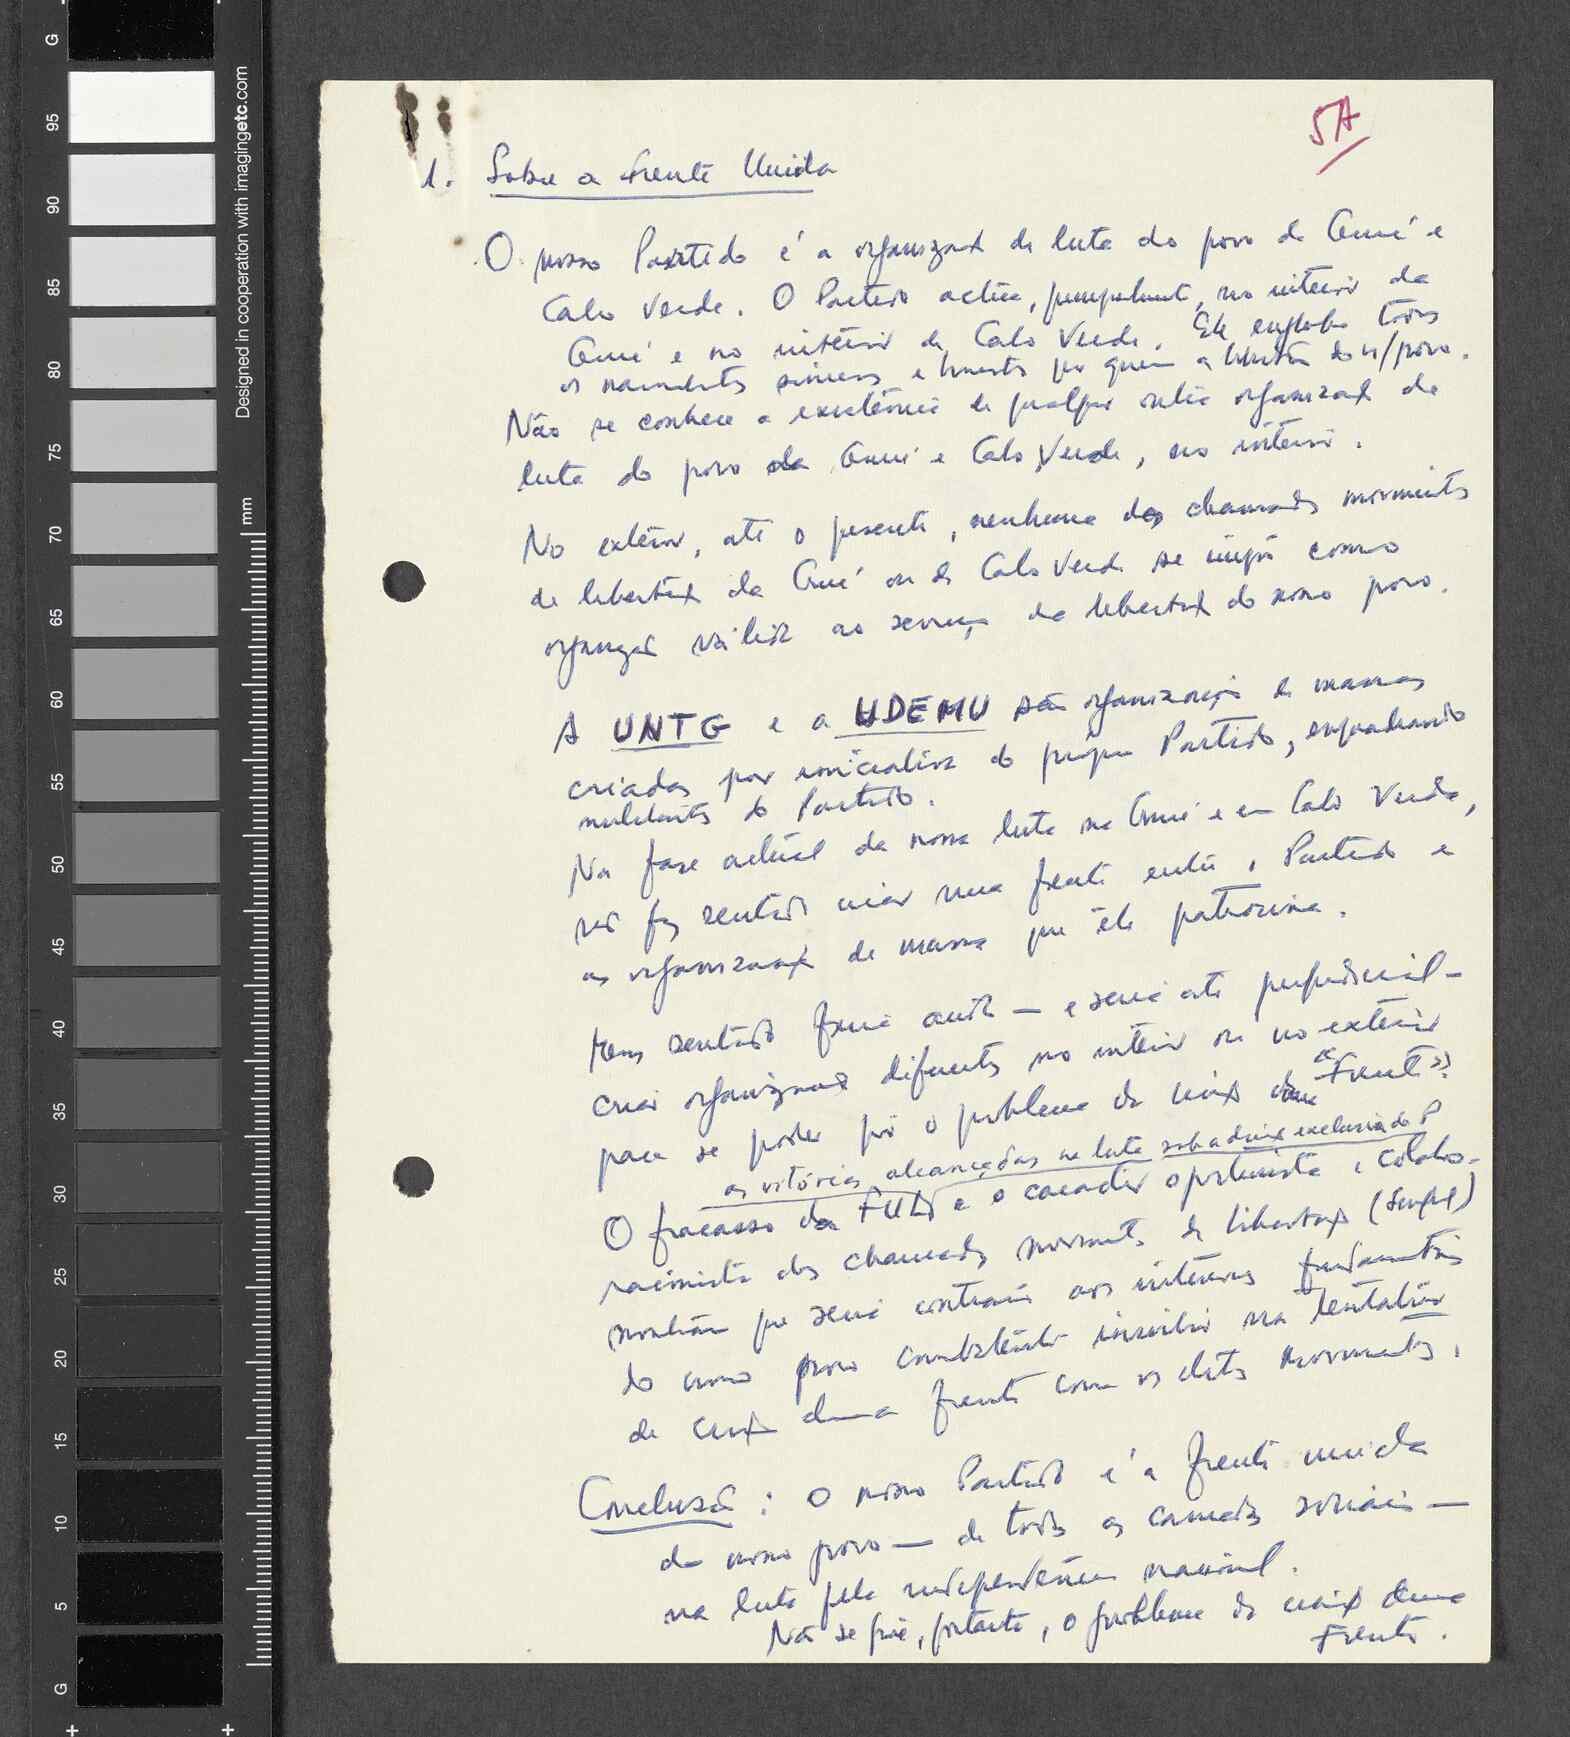 G
95
90
85
80
75
70
65
60
55
50
45
40
35
30
25
20
15
10
5
G
Designed in cooperation with imagingetc.com
mm
5A
1. Sobre a Frente Unida
O nosso Partido é a de luta do povo da Guiné e
Cabo Verde. O Partido actua, no interior da
Guiné e no interior de Cabo Verde. Ele engloba todos
os e por quem a do n/povo.
Não se conhece a existência de qualquer outra de
luta do povo da Guiné e Cabo Verde, no interior.
No exterior, até o presente, nenhum dos chamados movimentos
de da Guiné ou de Cabo Verde se impôs como
ao serviço da do nosso povo.
A UNTG e a UDEMU são de massas
criadas por iniciativa do próprio Partido, enquadrando
militantes do Partido.
Na fase actual da nossa luta na Guiné e em Cabo Verde,
não faz sentido criar uma frente entre o Partido e
as de massa que êle patrocina.
Nem sentido faria ainda — e seria até prejudicial —
criar diferentes no interior ou no exterior
para se poder pôr o problema da duma "Frente".
as vitórias alcançadas na luta sob a exclusiva do P
O fracasso da FUL e o caracter oportunista e colabo-
racionista dos chamados movimentos de
que seria contrário aos interesses fundamentais
do nosso povo na tentativa
de duma frente com os ditos movimentos.
Conclusão: O nosso Partido é a frente unida
do nosso povo — de todas as camadas sociais —
na luta pela independência nacional.
Não se põe, portanto, o problema da duma
Frente.